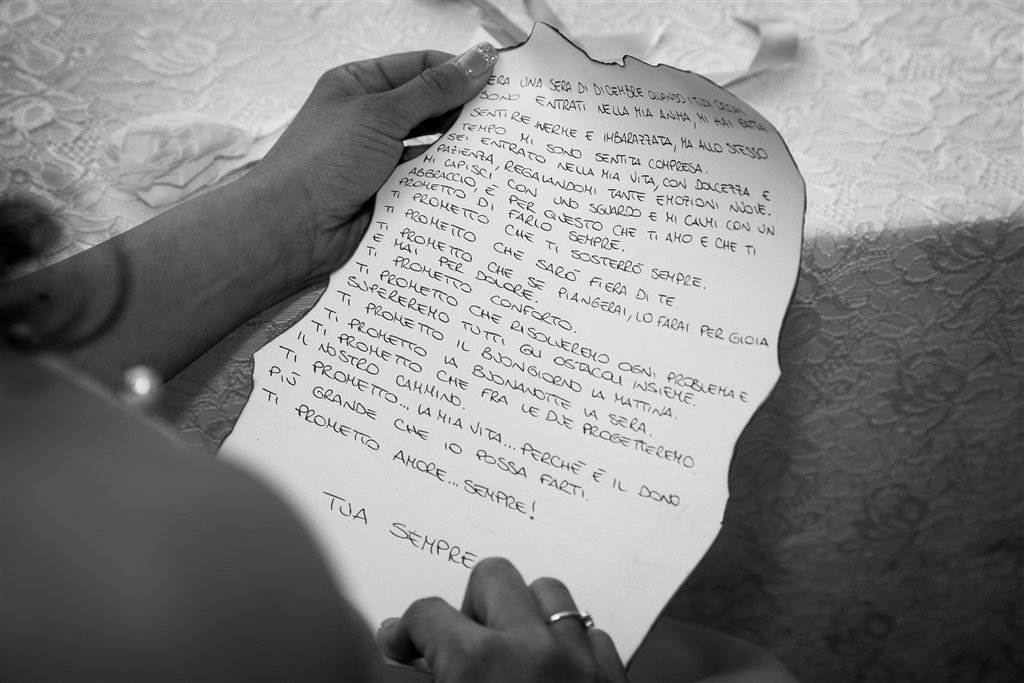 ERA UNA SERA DI DICEMBRE QUANDO I TUOI OCCHI
SONO ENTRATI NELLA MIA ANIMA, MI HAI FATTA
SENTIRE INERME E IMBARAZZATA, MA ALLO STESSO
TEMPO MI SONO SENTITA COMPRESA.
SEI ENTRATO NELLA MIA VITA, CON DOLCEZZA E
PAZIENZA, REGALANDOMI TANTE EMOZIONI NUOVE.
MI CAPISCI CON UNO SGUARDO E MI CALMI CON UN
ABBRACCIO, È PER QUESTO CHE TI AMO E CHE TI
PROMETTO DI FARLO SEMPRE.
TI PROMETTO CHE TI SOSTERRÒ SEMPRE.
TI PROMETTO CHE SARÒ FIERA DI TE.
TI PROMETTO CHE SE PIANGERAI, LO FARAI PER GIOIA
E MAI PER DOLORE.
TI PROMETTO CONFORTO.
TI PROMETTO CHE RISOLVEREMO OGNI PROBLEMA E
SUPEREREMO TUTTI GLI OSTACOLI INSIEME.
TI PROMETTO IL BUONGIORNO LA MATTINA.
TI PROMETTO LA BUONANOTTE LA SERA.
TI PROMETTO CHE FRA LE DUE PROGETTEREMO
IL NOSTRO CAMMINO.
TI PROMETTO... LA MIA VITA... PERCHÉ È IL DONO
PIÙ GRANDE CHE IO POSSA FARTI.
TI PROMETTO AMORE... SEMPRE!
TUA SEMPRE